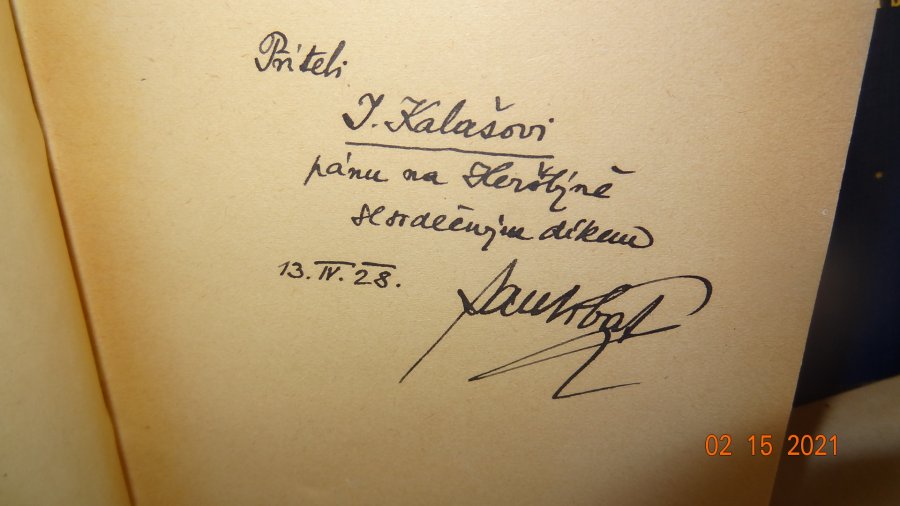 Příteli
J. Kalašovi
pánu na Herštýně
se srdečným díkem
13. IV. 28.
02 15 2021